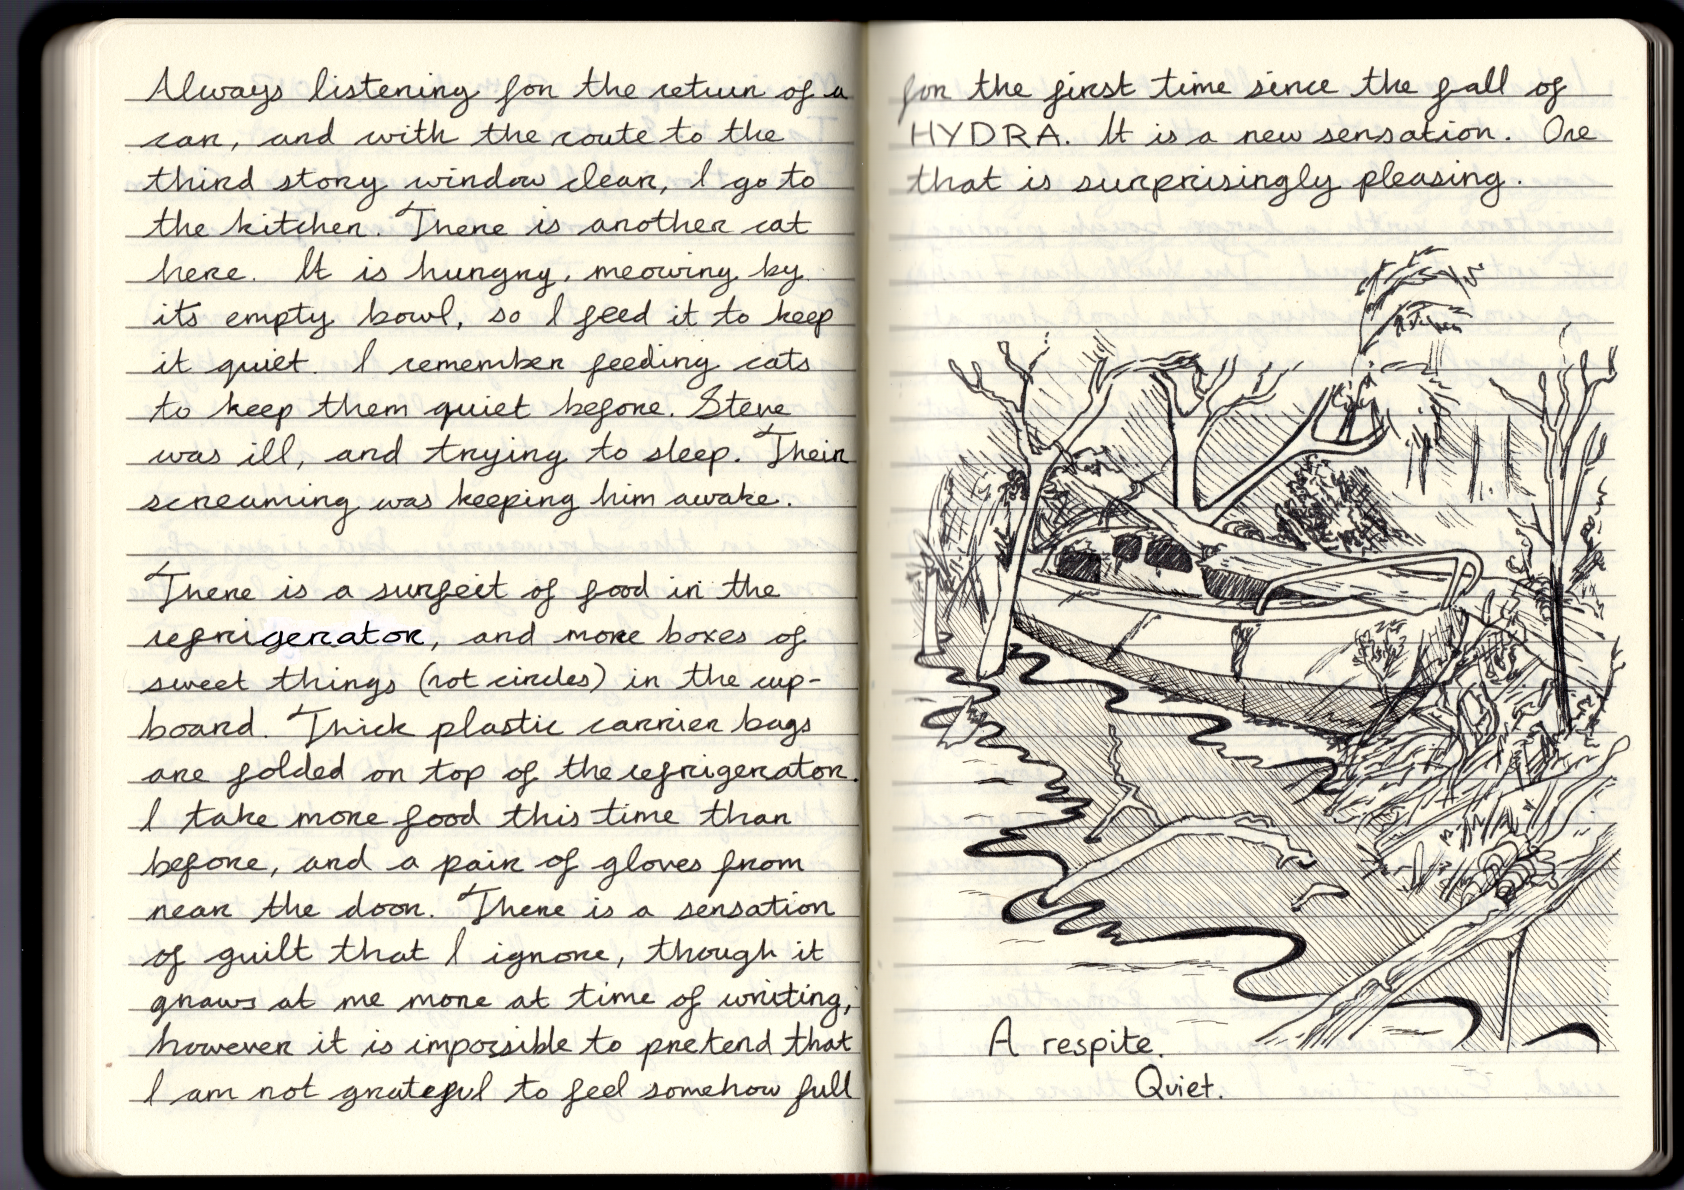 Always listening for the return of a
car, and with the route to the
third story window clear, I go to
the kitchen. There is another cat
here. It is hungry, meowing by
its empty bowl, so I feed it to keep
it quiet. I remember feeding cats
to keep them quiet before. Steve
was ill, and trying to sleep. Their
screaming was keeping him awake.
There is a surfeit of food in the
refrigerator, and more boxes of
sweet things (not circles) in the cup-
board. Thick plastic carrier bags
are folded on top of the refrigerator.
I take more food this time than
before, and a pair of gloves from
near the door. There is a sensation
of guilt that I ignore, though it
gnaws at me more at time of writing,
however it is impossible to pretend that
I am not grateful to feel somehow full
for the first time since the fall of
HYDRA. It is a new sensation. One
that is surprisingly pleasing.
A respite.
Quiet.